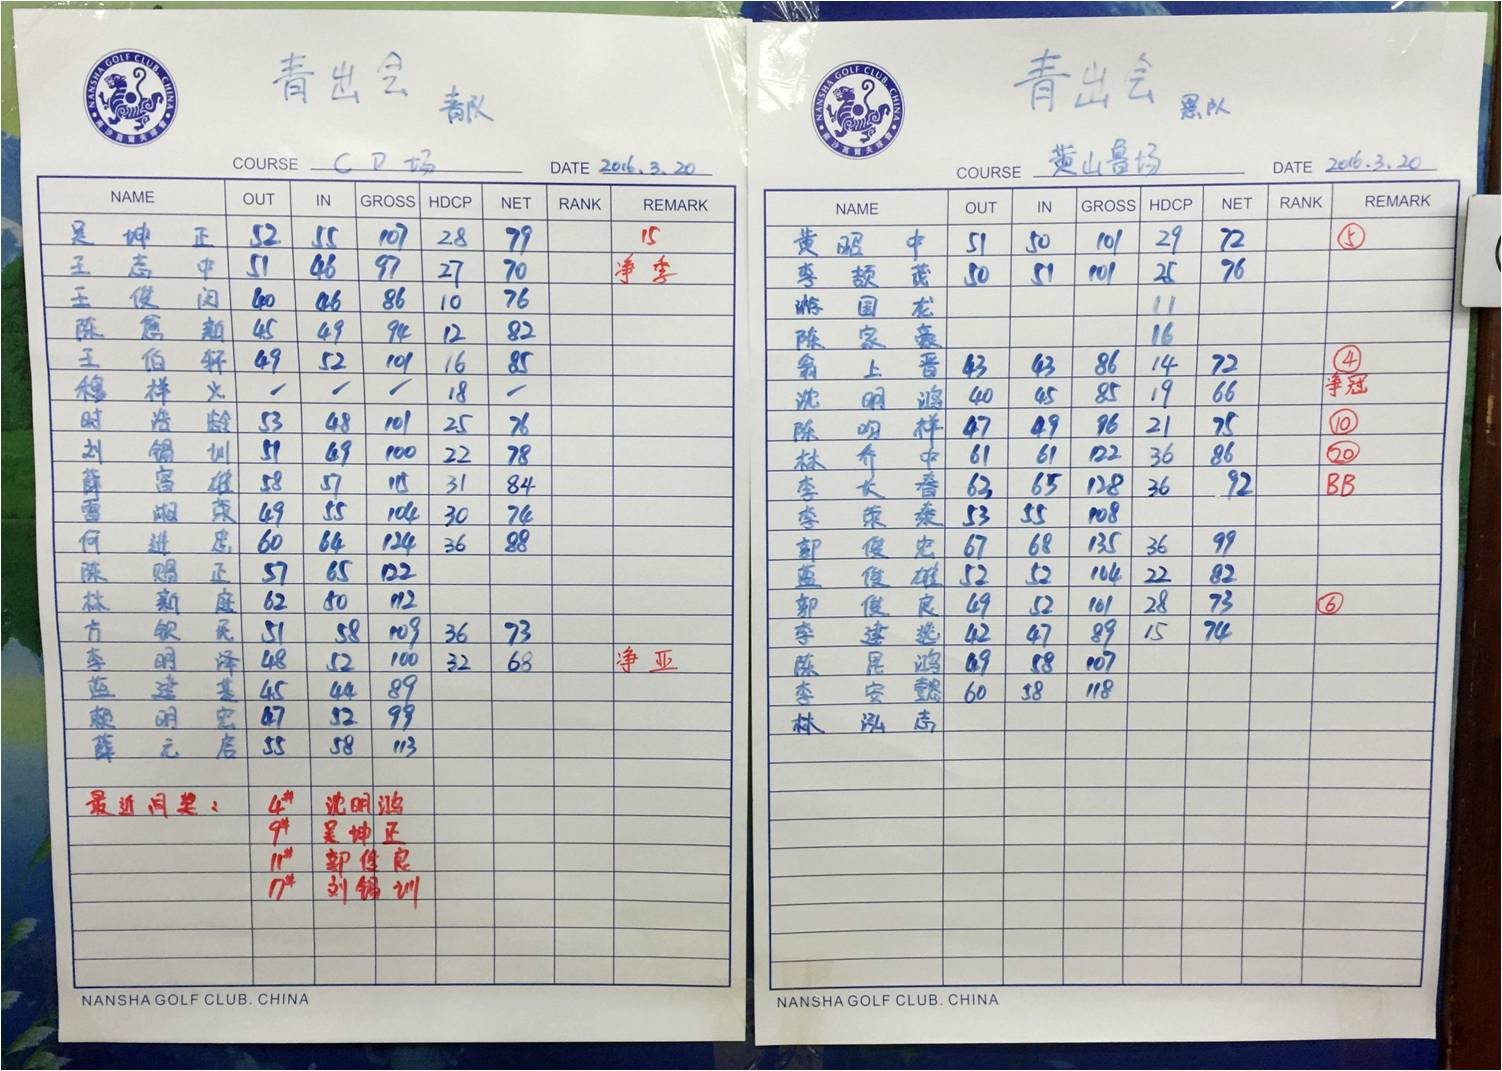 NANSHA GOLF CLUB, CHINA
青出会
青队
COURSE CD场 DATE 2016.3.20
NAME OUT IN GROSS HDCP NET RANK REMARK
吴坤正 52 55 107 28 79 15
王志中 51 46 97 27 70 净季
王俊闵 40 46 86 10 76
陈啟新 45 49 94 12 82
王伯轩 49 52 101 16 85
穆样火 / / / 18 /
时浩龄 53 48 101 25 76
刘锡圳 51 49 100 22 78
薛富雄 58 57 115 31 84
雷湘荣 49 55 104 30 74
何进忠 60 64 124 36 88
陈赐正 57 65 122
林新庭 62 50 112
方钦民 51 58 109 36 73
李明泽 48 52 100 32 68 净亚
蓝建基 45 44 89
赖明宏 47 52 99
薛元启 55 58 113
最近洞奖：
4# 沈明鸿
9# 吴坤正
11# 郭俊良
17# 刘锡圳
NANSHA GOLF CLUB. CHINA
NANSHA GOLF CLUB, CHINA
青出会
COURSE 黄山鲁场 DATE 2016.3.20
NAME OUT IN GROSS HDCP NET RANK REMARK
黄昭中 51 50 101 29 72 ⑤
李颉茂 50 51 101 25 76
游国龙 11
陈家豪 16
翁上晋 43 43 86 14 72 ④
沈明鸿 40 45 85 19 66 净冠
陈明样 47 49 96 21 75 ⑩
林乔中 61 61 122 36 86 ⑳
李长春 63 65 128 36 92 BB
李荣泰 53 55 108
郭俊宏 67 68 135 36 99
蓝俊雄 52 52 104 22 82
郭俊良 49 52 101 28 73 ⑥
李建逸 42 47 89 15 74
陈昆鸿 49 58 107
李安 60 58 118
林泓志
NANSHA GOLF CLUB. CHINA